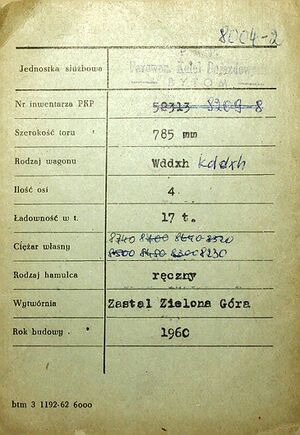 8004-2
Jednostka służbowa
Parowoz. Kolei Dojazdow.
BYTOM
Nr inwentarza PKP 52313 8209-8
Szerokość toru 785 mm
Rodzaj wagonu Wddxh kddxh
Ilość osi 4
Ładowność w t. 17 t.
Ciężar własny 8740 8400 8690 8520
8500 8480 8300 8230
Rodzaj hamulca ręczny
Wytwórnia Zastal Zielona Góra
Rok budowy 1960
btm 3 1192-62 6000